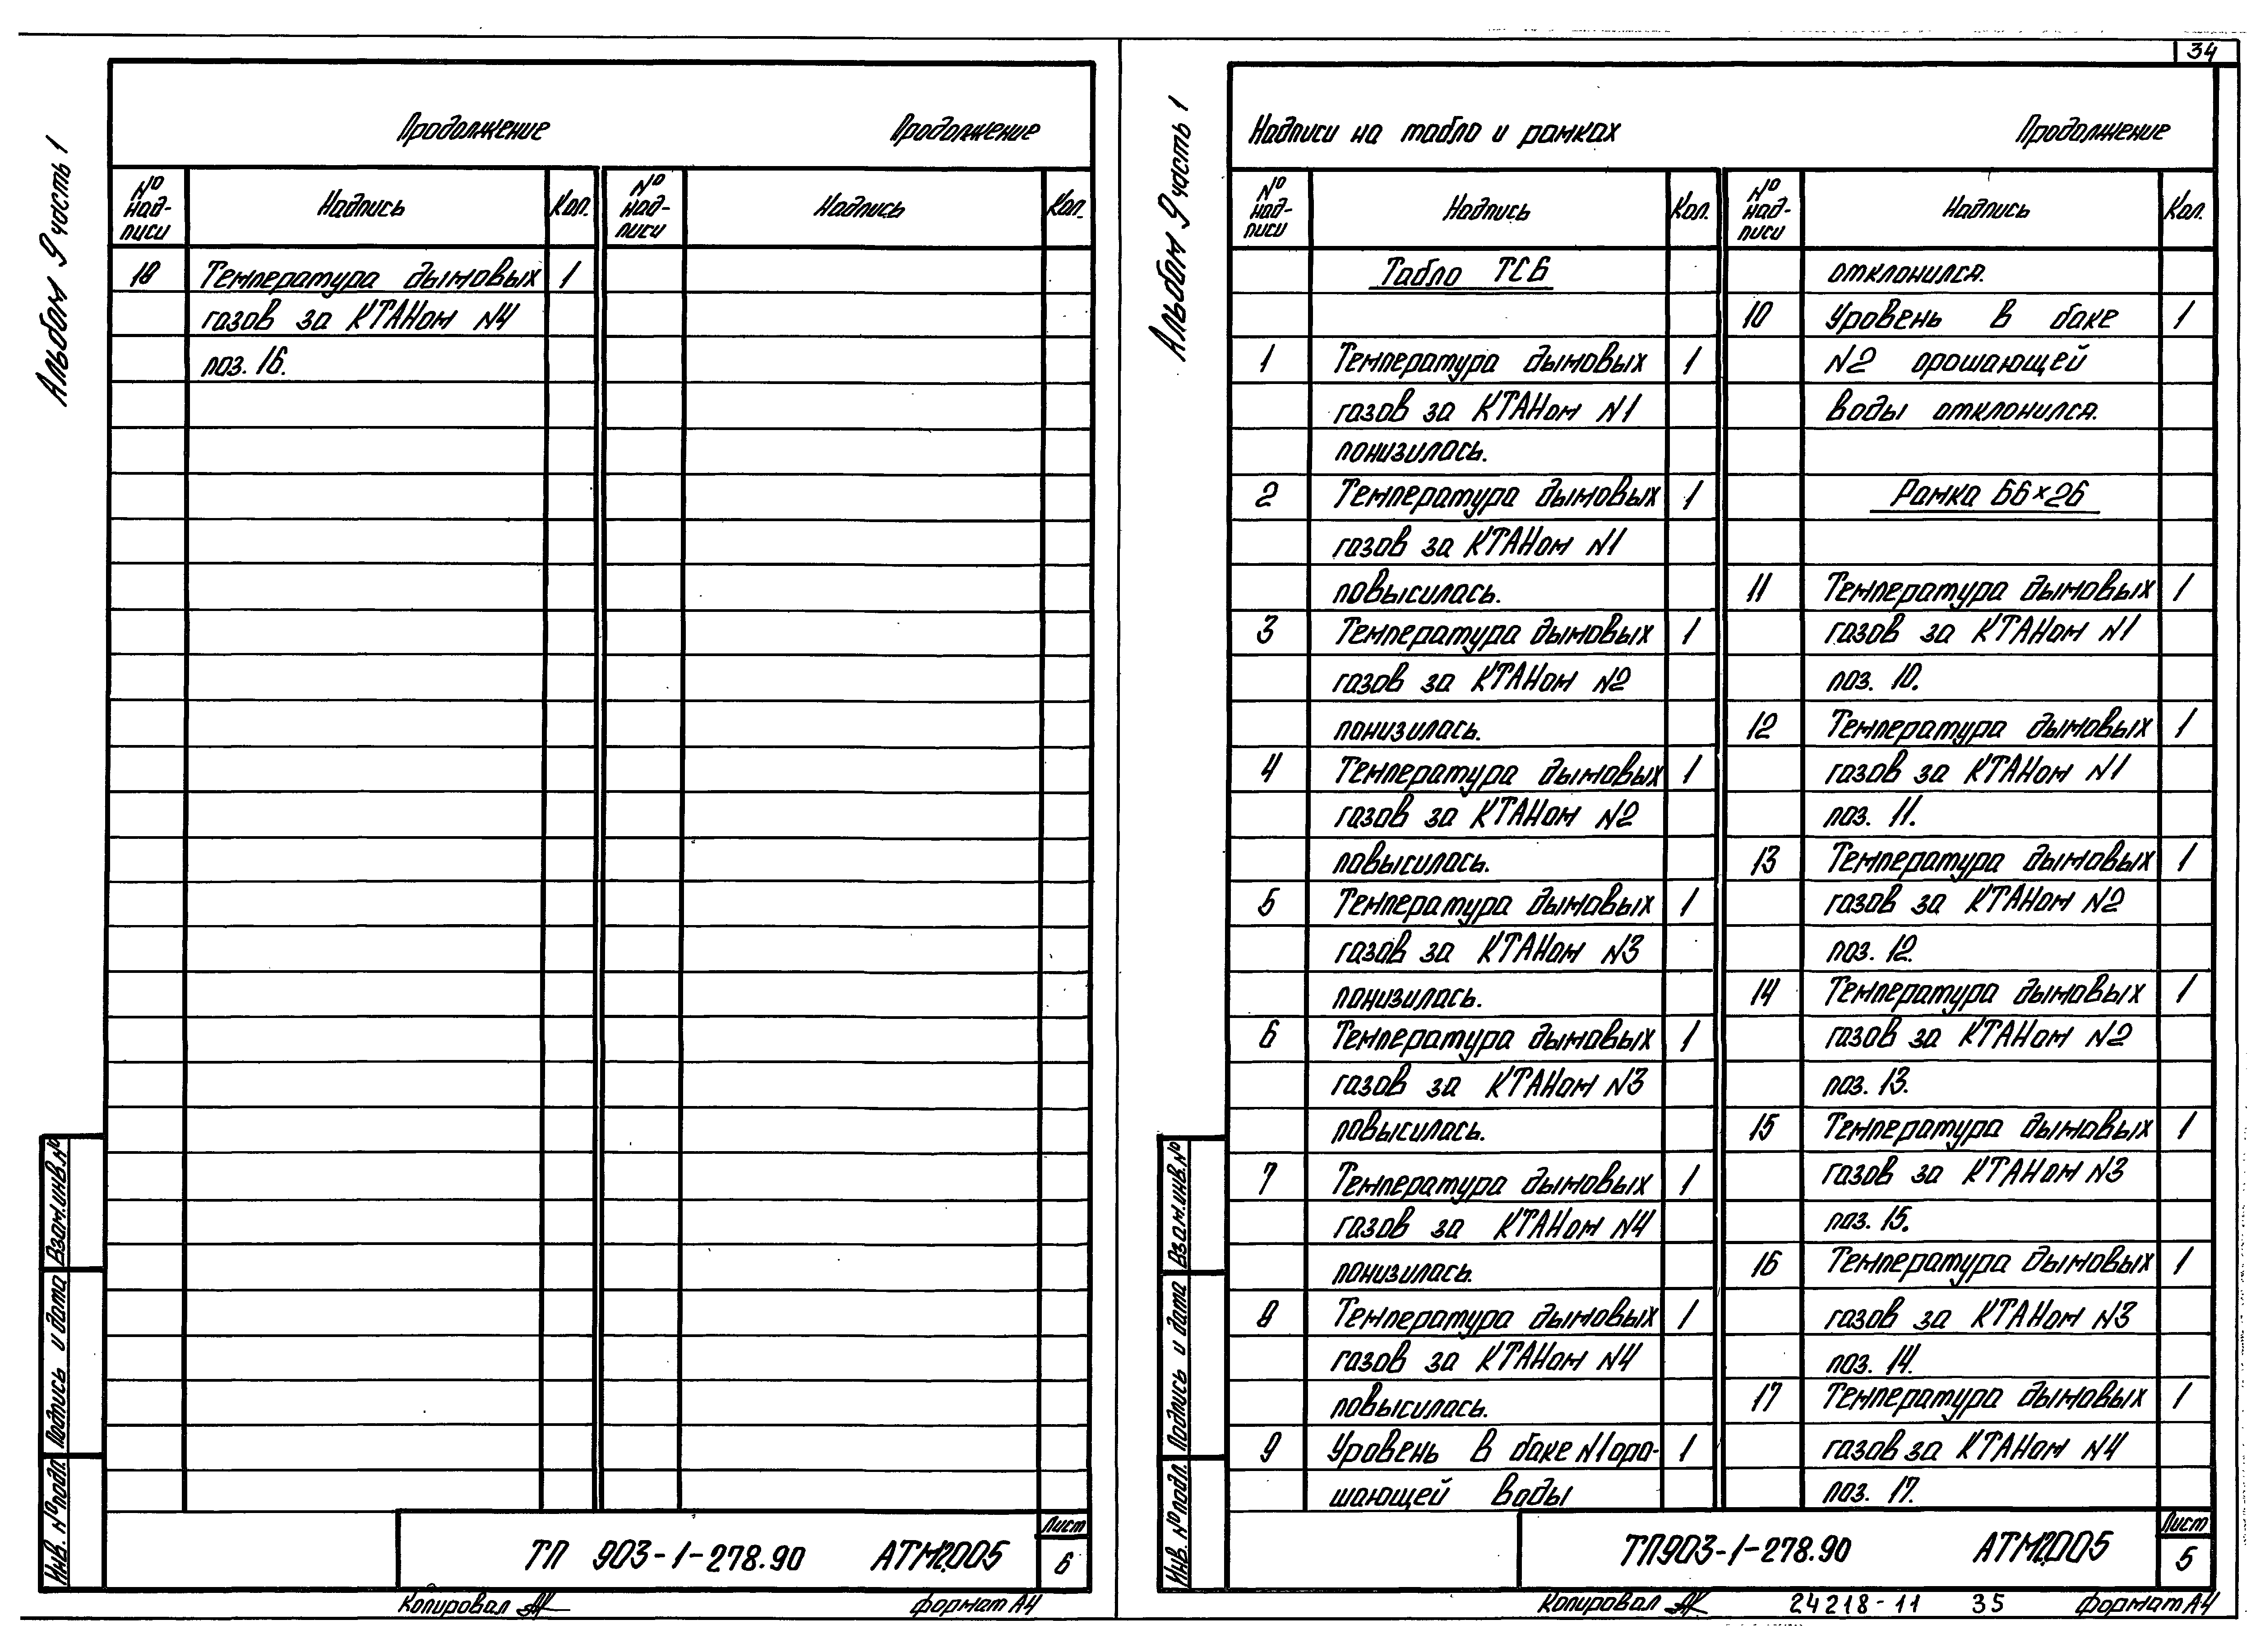 Альбом 9 часть 1
Продолжение
Продолжение
№ над-писи Надпись Кол. № над-писи Надпись Кол.
18 Температура дымовых 1
газов за КТАНом N4
поз. 16.
Взам.инв.№
Подпись и дата
Инв. №подл.
ТП 903-1-278.90 АТМ2.005
Лист
6
Копировал
формат А4
34
Альбом 9 часть 1
Надписи на табло и рамках
Продолжение
№ над-писи Надпись Кол. № над-писи Надпись Кол.
Табло ТСБ
1 Температура дымовых 1
газов за КТАНом N1
понизилась.
2 Температура дымовых 1
газов за КТАНом N1
повысилась.
3 Температура дымовых 1
газов за КТАНом N2
понизилась.
4 Температура дымовых 1
газов за КТАНом N2
повысилась.
5 Температура дымовых 1
газов за КТАНом N3
понизилась.
6 Температура дымовых 1
газов за КТАНом N3
повысилась.
7 Температура дымовых 1
газов за КТАНом N4
понизилась.
8 Температура дымовых 1
газов за КТАНом N4
повысилась.
9 Уровень в баке N1 оро- 1
шающей воды
отклонился.
10 Уровень в баке 1
N2 орошающей
воды отклонился.
Рамка 66×26
11 Температура дымовых 1
газов за КТАНом N1
поз. 10.
12 Температура дымовых 1
газов за КТАНом N1
поз. 11.
13 Температура дымовых 1
газов за КТАНом N2
поз. 12.
14 Температура дымовых 1
газов за КТАНом N2
поз. 13.
15 Температура дымовых 1
газов за КТАНом N3
поз. 15.
16 Температура дымовых 1
газов за КТАНом N3
поз. 14.
17 Температура дымовых 1
газов за КТАНом N4
поз. 17.
Взам.инв.№
Подпись и дата
Инв. №подл.
ТП903-1-278.90 АТМ2.005
Лист
5
Копировал
24218-11 35
формат А4